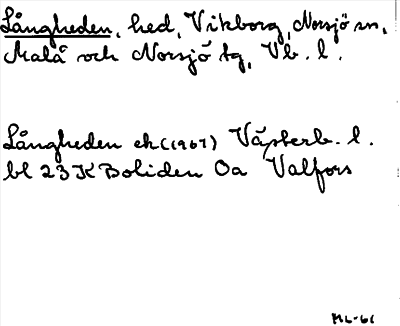 Långheden, hed, Vikborg, Norsjö sn,
Malå och Norsjö tg, Vb. l.
Långheden ek (1967) Västerb. l.
bl 23K Boliden 0a Valfors
ML-61